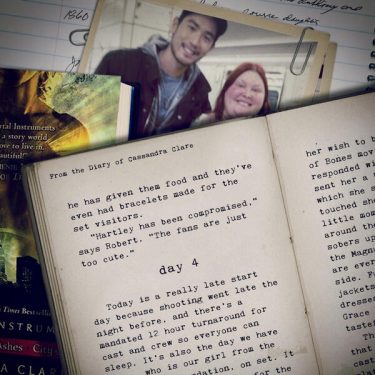 1860
tal Instruments
a story world
ove to live in.
autiful!
From the Diary of Cassandra Clare
he has given them food and they've
even had bracelets made for the
set visitors.
"Hartley has been compromised."
says Robert. "The fans are just
too cute."
day 4
Today is a really late start
day because shooting went late the
night before, and there's a
mandated 12 hour turnaround for
cast and crew so everyone can
sleep. It's also the day we have
who is our girl from the
ndation, on set. It
her wish to b
of Bones mov
responded wi
sent her a
which she s
touched she
little mom
around the
sobers up
the Magn
are ever
side. Fu
jackets
dressed
Grace
tastes
Times Bestsel
NSTRUM
Ashes City
A CLA